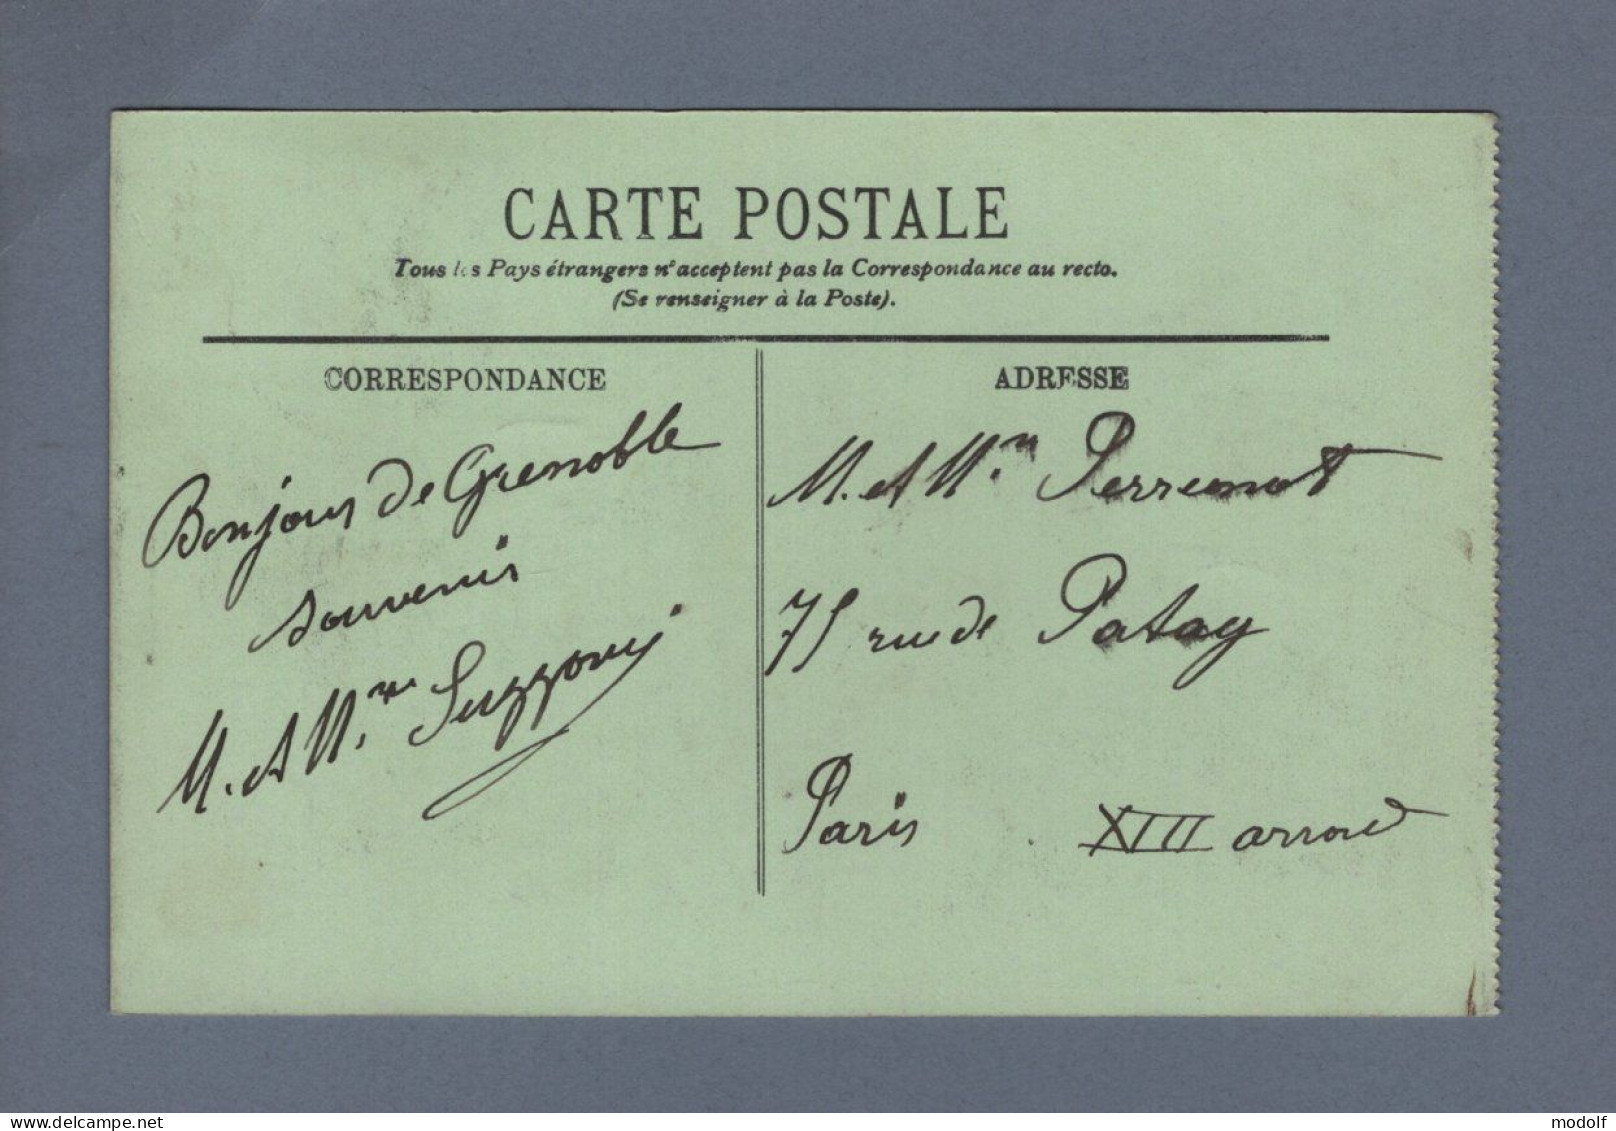 CARTE POSTALE
Tous les Pays étrangers n'acceptent pas la Correspondance au recto.
(Se renseigner à la Poste).
CORRESPONDANCE
Bonjour de Grenoble
souvenir
M. et Mme
ADRESSE
M. et Mme Perremot
75 rue de Patay
Paris XIII arrond
delcampe.net
modolf